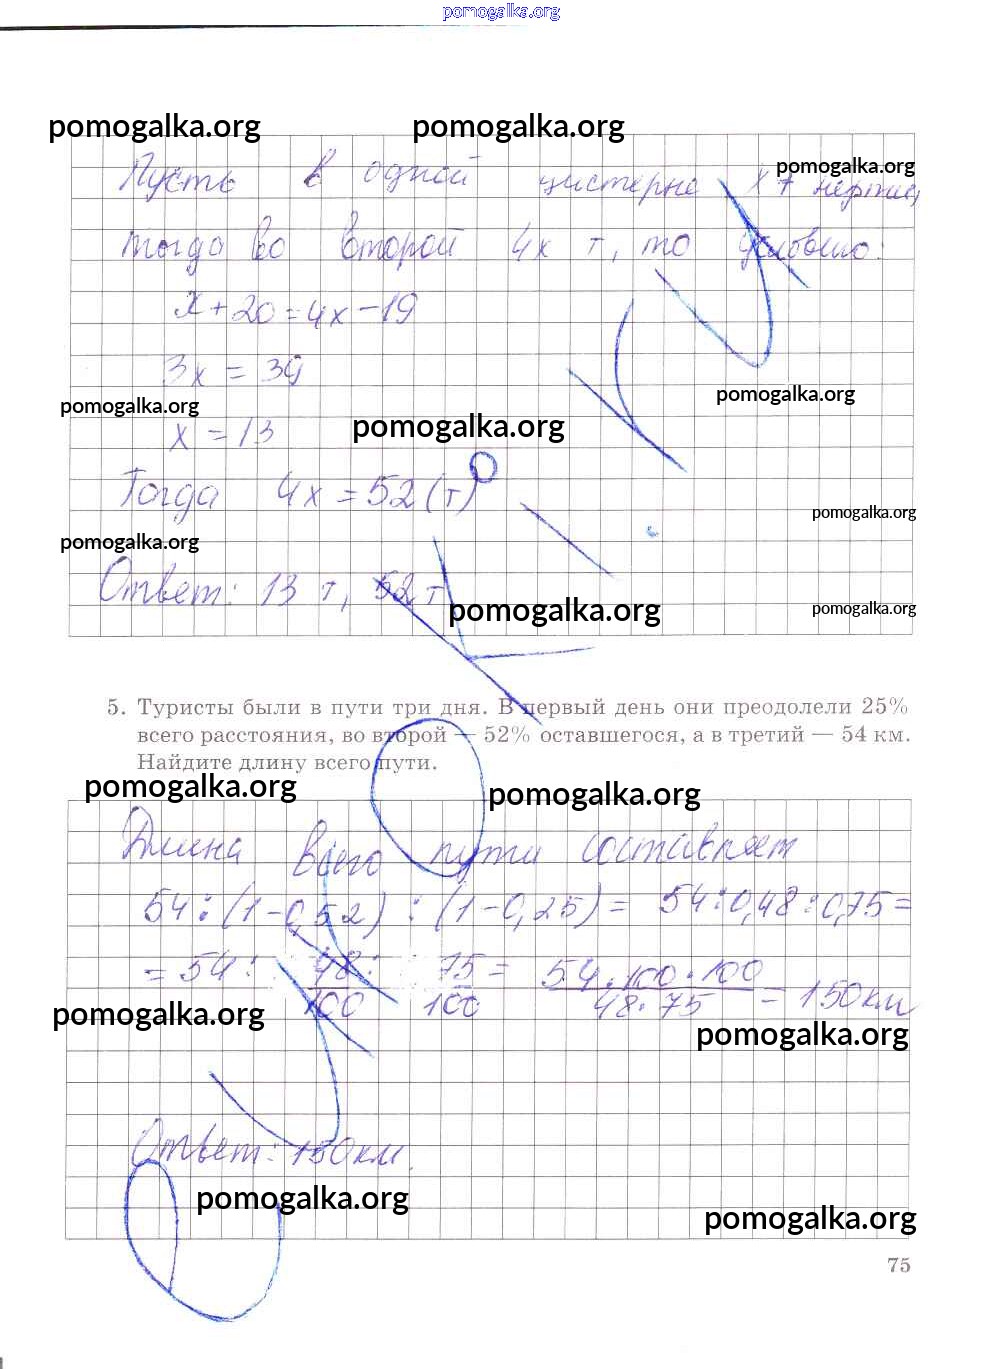 pomogalka.org
pomogalka.org pomogalka.org
pomogalka.org
Пусть в одной цистерне х т нефти,
тогда во второй 4х т, то условию:
х + 20 = 4х - 19
3х = 39
pomogalka.org pomogalka.org
х = 13 pomogalka.org
Тогда 4х = 52 (т)
pomogalka.org
pomogalka.org
Ответ: 13 т, 52 т
pomogalka.org pomogalka.org
5. Туристы были в пути три дня. В первый день они преодолели 25%
всего расстояния, во второй — 52% оставшегося, а в третий — 54 км.
Найдите длину всего пути.
pomogalka.org pomogalka.org
Длина всего пути составляет
54 : (1 - 0,52) : (1 - 0,25) = 54 : 0,48 : 0,75 =
= 54 : 48/100 : 75/100 = 54·100·100/48·75 = 150 км
pomogalka.org pomogalka.org
Ответ: 150 км.
pomogalka.org pomogalka.org
75